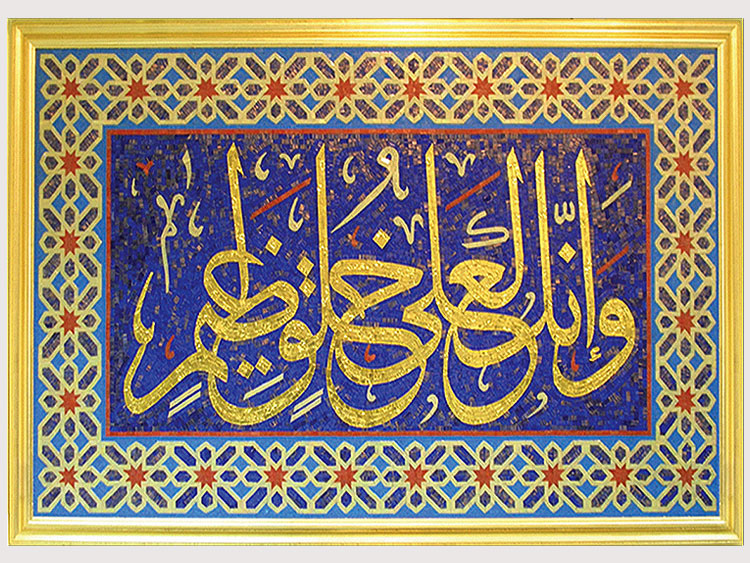 وَإِنَّكَ لَعَلى خُلُقٍ عَظِيمٍ